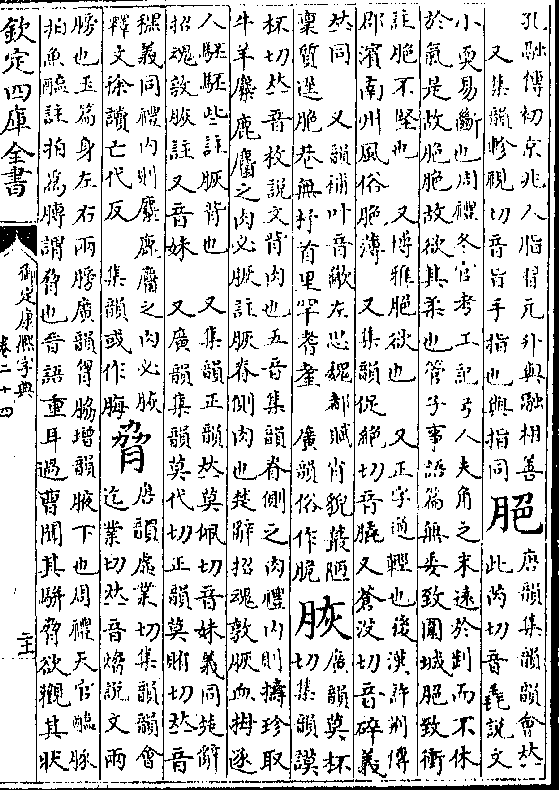 孔融傳初京兆人脂習元升與融相善
又集韻軫視切音旨手指也與指同
脃
唐韻集韻韻會𠀤
此芮切音毳說文
小耎易斷也周禮冬官考工記弓人夫角之末遠於㓣而不休
於氣是故脃脃故欲其柔也管子事語篇無委致圍城脃致衝
註脃不堅也 又博雅脃欲也 又正字通輕也後漢許荆傳
郡濱南州風俗脃薄 又集韻促絕切音膬又蒼沒切音碎義
𠀤同 又韻補叶音歠左思魏都賦宵貌蕞陋
稟質遳脃巷無杼首里罕耆耋 廣韻俗作脆
脄
廣韻莫杯
切集韻謨
杯切𠀤音枚說文背肉也五音集韻脊側之肉禮內則擣珍取
牛羊麋鹿麕之肉必脄註脄脊側肉也楚辭招魂敦脄血拇逐
人駓駓些註脄背也 又集韻正韻𠀤莫佩切音妹義同楚辭
招魂敦脄註又音妹 又廣韻集韻莫代切正韻莫賄切𠀤音
義同禮內則麋鹿麕之肉必脄
釋文徐讀亡代反 集韻或作脢
脅
唐韻虛業切集韻韻會
迄業切𠀤音熁說文兩
膀也玉篇身左右兩膀廣韻胷脇增韻腋下也周禮天官醢豚
拍魚醢註拍爲膊謂脅也晉語重耳過曹聞其駢脅欲觀其狀
欽定四庫全書
御定康熙字典
卷二十四